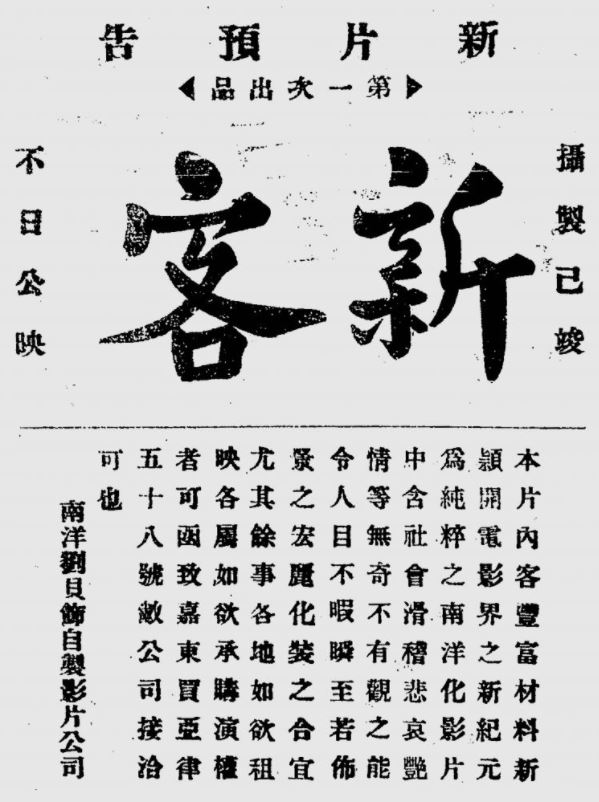 新片預告
第一次出品
新客
攝製己竣
不日公映
本片內客豐富材料新
頴開電影界之新紀元
爲純粹之南洋化影片
中含社會滑稽悲哀艷
情等無奇不有觀之能
令人目不暇瞬至若佈
景之宏麗化裝之合宜
尤其餘事各地如欲租
映各屬如欲承購演權
者可函致嘉東買亞律
五十八號敝公司接洽
可也
南洋劉貝錦自製影片公司